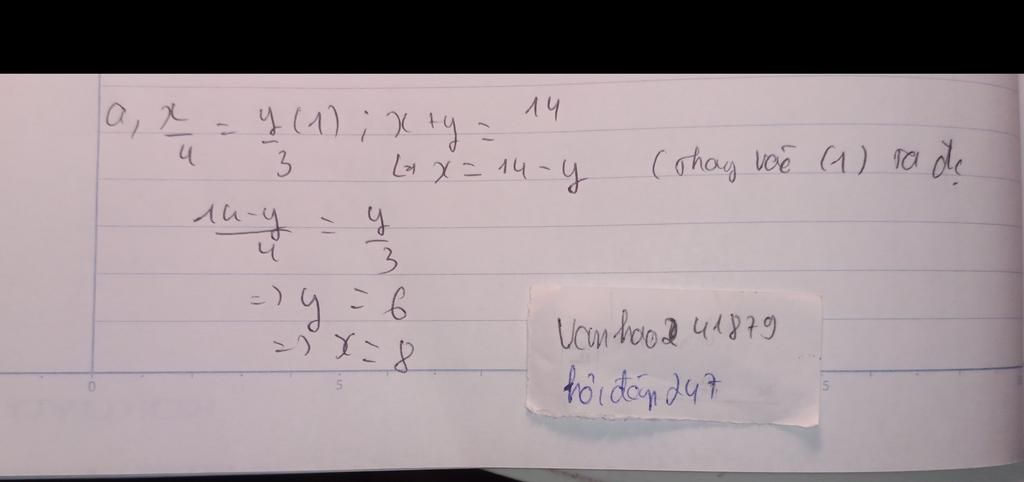 a, x/4 = y/3 (1) ; x + y = 14
↳ x = 14 - y (thay vào (1) ra đc
14-y/4 = y/3
=> y = 6
=> x = 8
vanhao241879
hỏi đáp 247
0 5 5